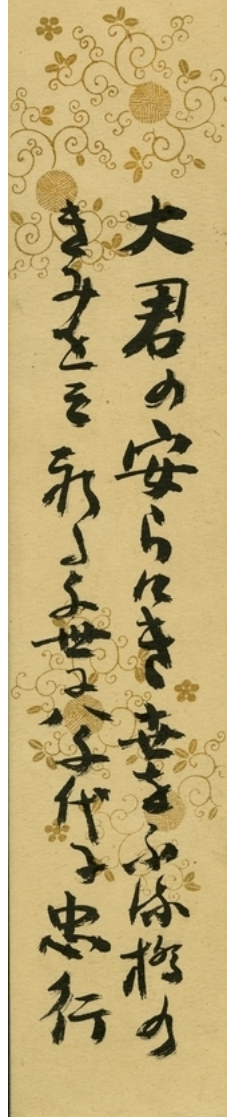 大君の安らけき世をふる橋の
きみをそ祈る千世に八千代に 忠行